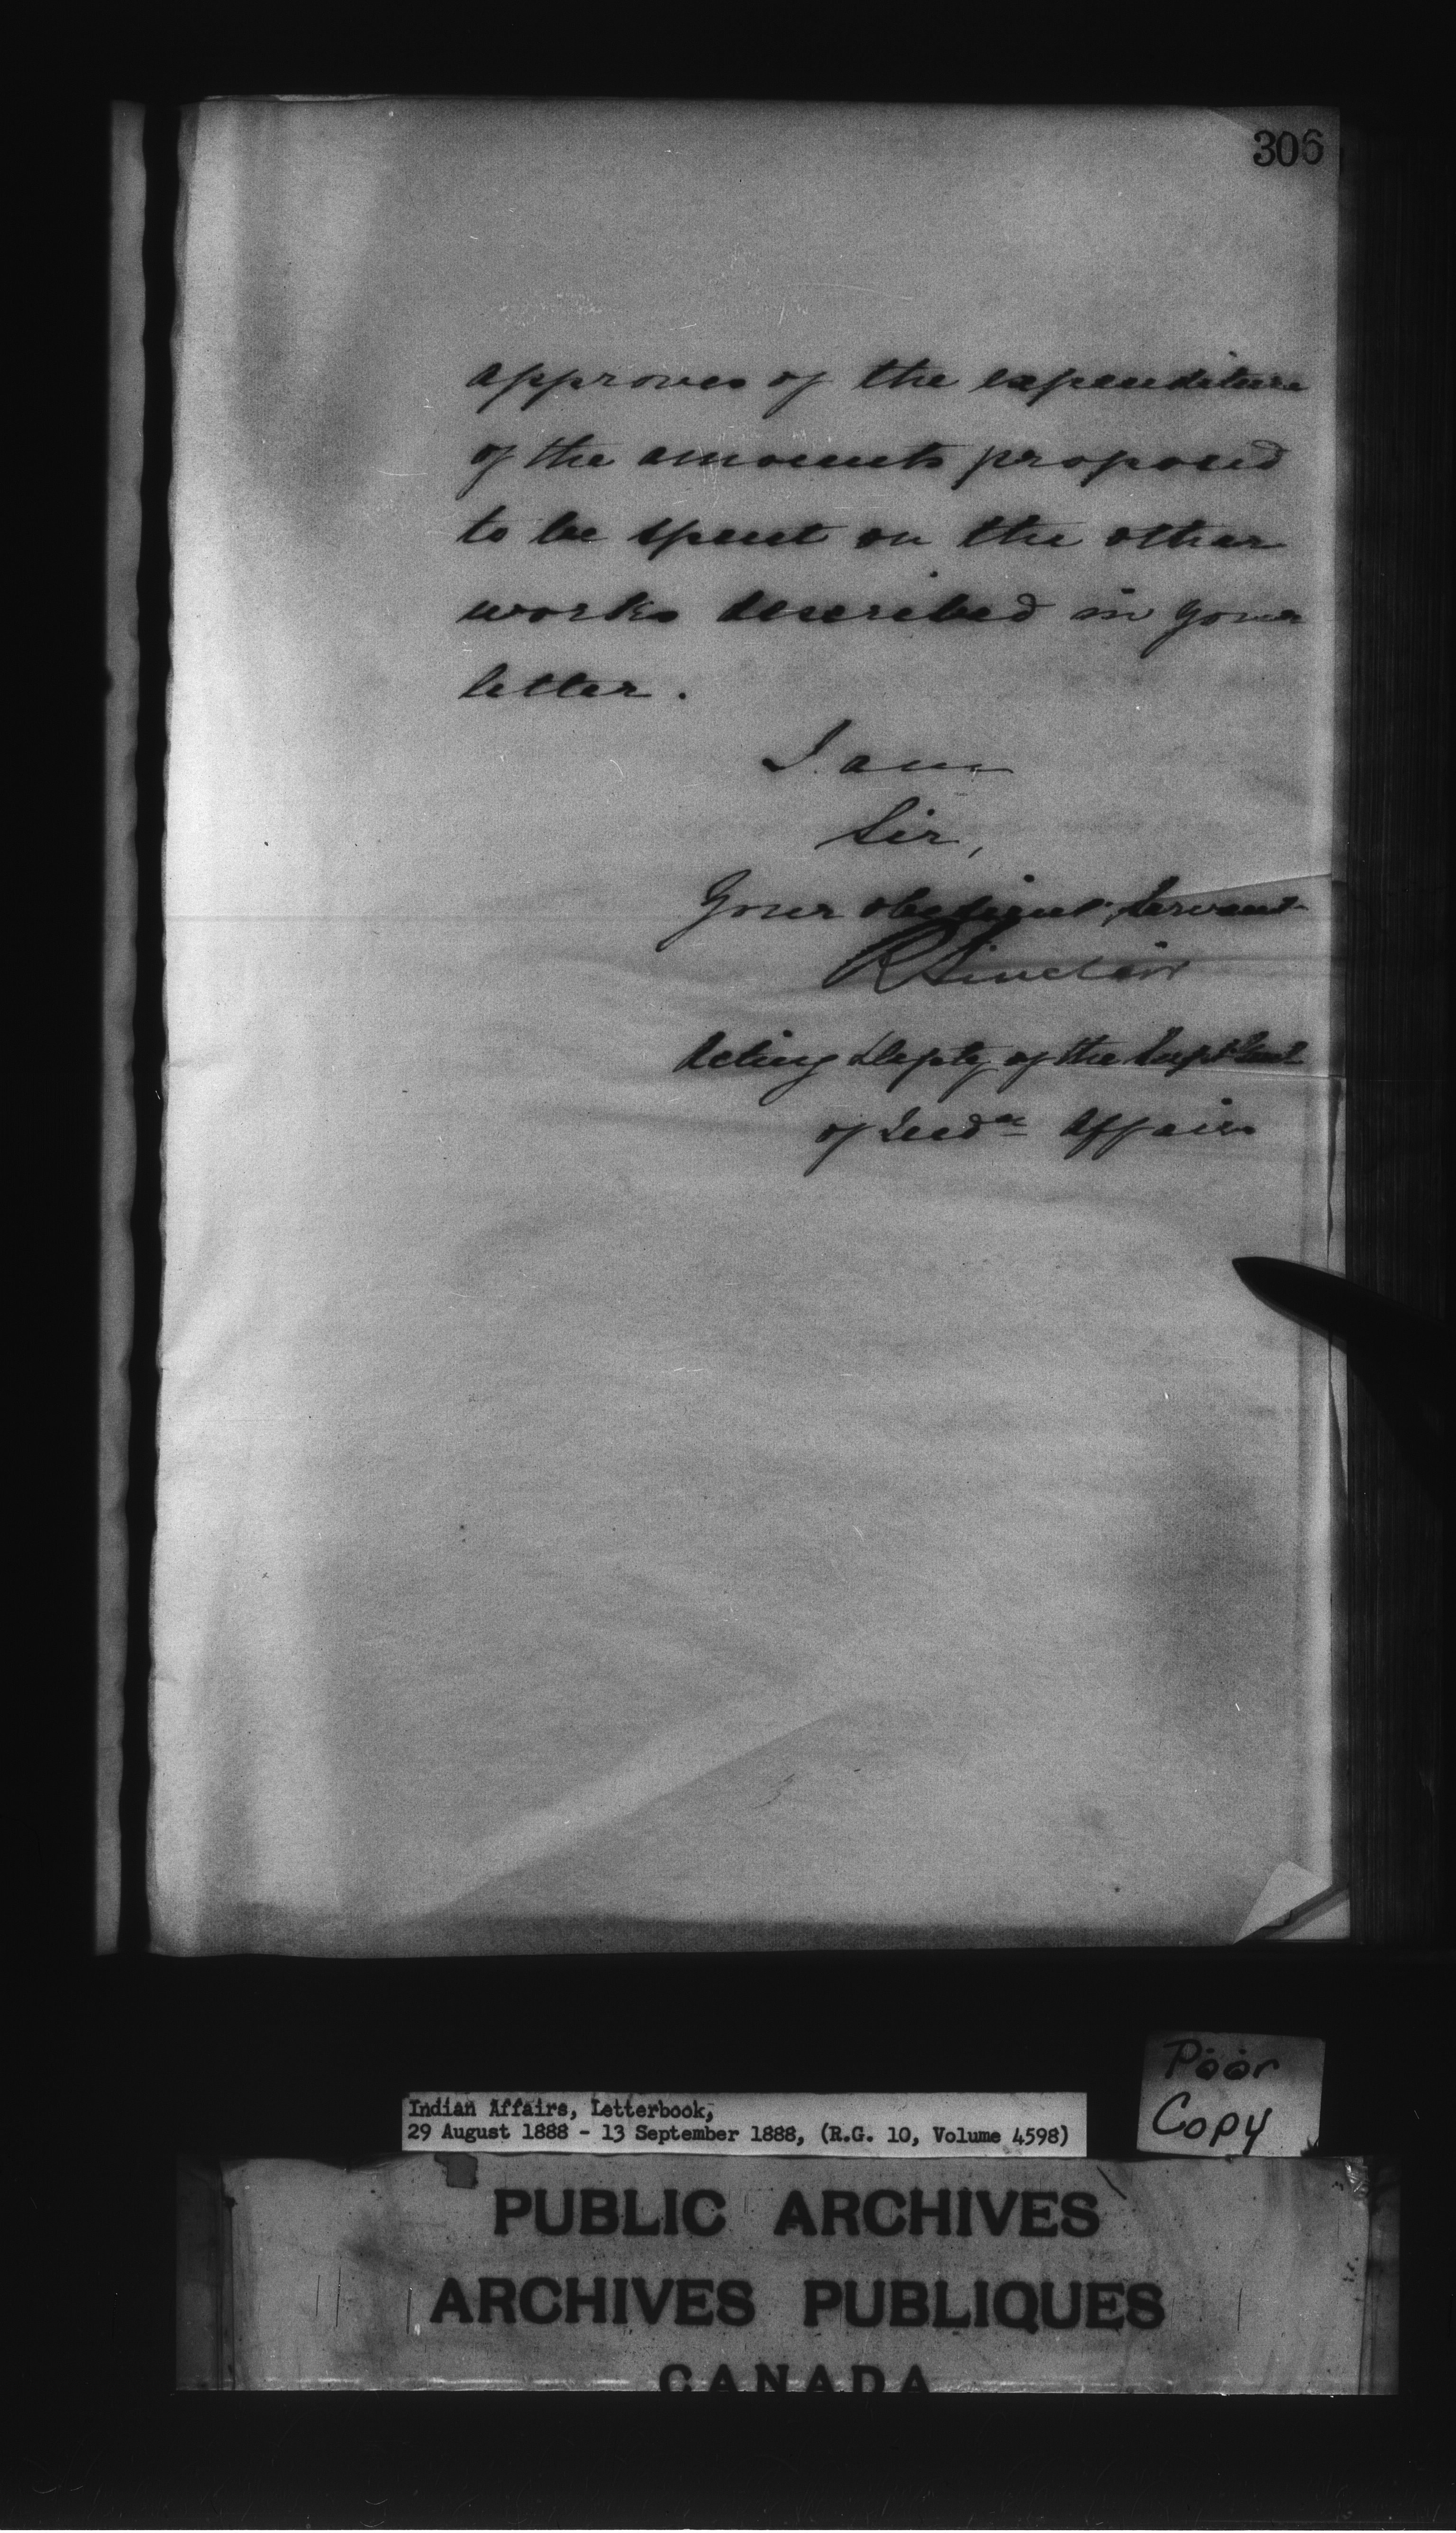 306
approves of the expenditure
of the amounts proposed
to be spent on the other
works described in your
letter.
I am
Sir,
Your obedient Servant
R Sinclair
Acting Depty of the Supt Genl
of Indn Affairs
Poor
Copy
Indian Affairs, Letterbook,
29 August 1888 - 13 September 1888, (R.G. 10, Volume 4598)
PUBLIC ARCHIVES
ARCHIVES PUBLIQUES
CANADA